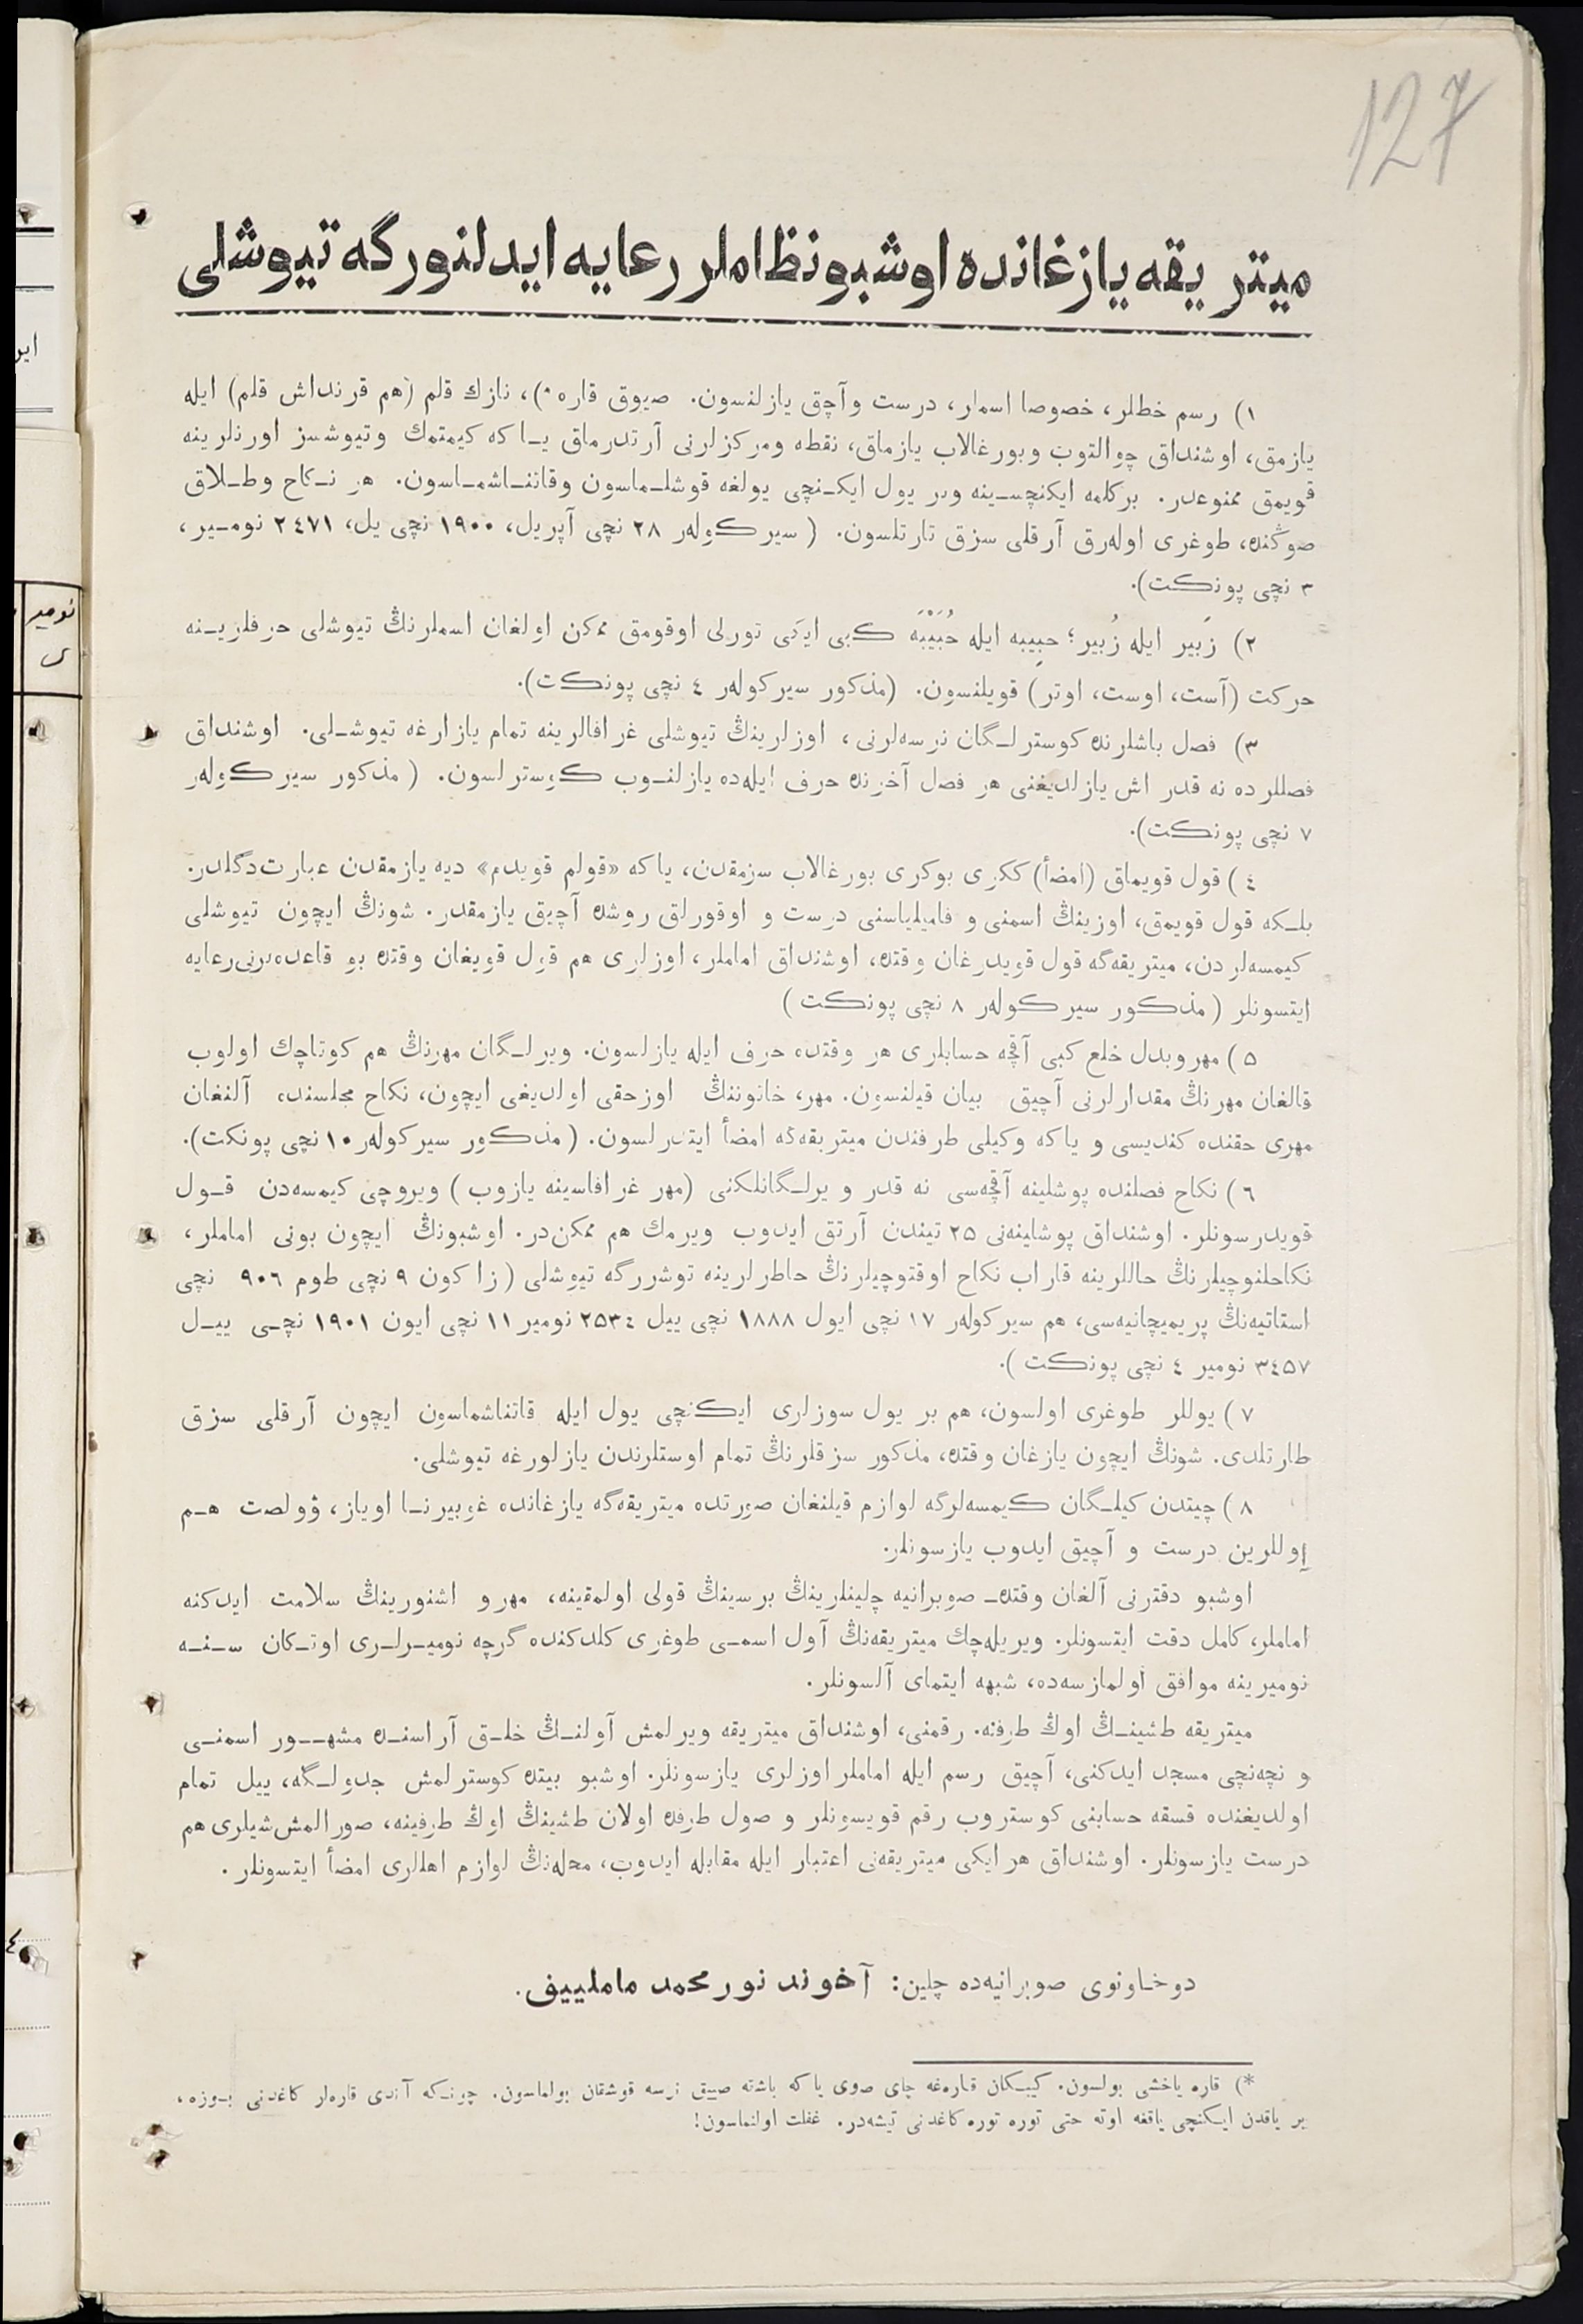 127
ميتريقه يازغانده اوشبو نظاملر رعايه ايدلنورگه تيوشلى
١) رسم خطلر، خصوصا اسملر، درست وآچق يازلنسون. صيوق قاره *)، نازك قلم (هم قرنداش قلم) ايله
يازمق، اوشنداق چوالتوب وبورغالاب يازماق، نقطه ومركزلرنى آرتدرماق يـا كه كيمتمك وتيوشسز اورنلرينه
قويمق ممنوعدر. بركلمه ايكنچسـينه وبر يول ايكـنچى يولغه قوشلـماسون وقاتنـاشمـاسون. هر نـكاح وطـلاق
صوڭنده، طوغرى اوله‌رق آرقلى سزق تارتلسون. (سيركوله‌ر ٢٨ نچى آپريل، ١٩٠٠ نچى يل، ٢٤٧١ نومـير،
٣ نچى پونكت).
٢) زَبير ايله زُبير؛ حبِيبه ايله حُبَيْبَه كبى ايكى تورلى اوقومق ممكن اولغان اسملرنڭ تيوشلى حرفلريـنه
حركت (آست، اوست، اوتر) قويلنسون. (مذكور سيركوله‌ر ٤ نچى پونكت).
٣) فصل باشلرنده كوسترلـگان نرسه‌لرنى، اوزلرينڭ تيوشلى غرافالرينه تمام يازارغه تيوشـلى. اوشنداق
فصللرده نه قدر اش يازلديغنى هر فصل آخرنده حرف ايله‌ده يازلنـوب كوسترلسون. (مذكور سيركوله‌ر
٧ نچى پونكت).
٤) قول قويماق (امضأ) ككرى بوكرى بورغالاب سزمقدن، ياكه «قولم قويدم» ديه يازمقدن عبارت‌دگلدر.
بلـكه قول قويمق، اوزينڭ اسمنى و فاميلياسنى درست و اوقورلق روشده آچيق يازمقدر. شونڭ ايچون تيوشلى
كيمسه‌لردن، ميتريقه‌گه قول قويدرغان وقتده، اوشنداق اماملر، اوزلرى هم قول قويغان وقتده بو قاعده‌لرنى‌رعايه
ايتسونلر (مذكور سيركوله‌ر ٨ نچى پونكت)
٥) مهر وبدل خلع كبى آقچه حسابلرى هر وقتده حرف ايله يازلسون. ويرلـگان مهرنڭ هم كوتاچك اولوب
قالغان مهرنڭ مقدارلرنى آچيق بيان قيلنسون. مهر، خاتوننڭ اوزحقى اولديغى ايچون، نكاح مجلسنده آلنغان
مهرى حقنده كنديسى و ياكه وكيلى طرفندن ميتريقه‌گه امضأ ايتدرلسون. (مذكور سيركوله‌ر ١٠ نچى پونكت).
٦) نكاح فصلنده پوشلينه آقچه‌سى نه قدر ويرلـگانلكنى (مهر غرافاسينه يازوب) ويروچى كيمسه‌دن قـول
قويدرسونلر. اوشنداق پوشلينه‌نى ٢٥ تيندن آرتق ايدوب ويرمك هم ممكن‌در. اوشبونڭ ايچون بونى اماملر،
نكاحلنوچيلرنڭ حاللرينه قاراب نكاح اوقتوچيلرنڭ خاطرلرينه توشررگه تيوشلى (زاكون ٩ نچى طوم ٩٠٦ نچى
استاتيه‌نڭ پريميچانيه‌سى، هم سيركوله‌ر ١٧ نچى ايول ١٨٨٨ نچى ييل ٢٥٣٤ نومير ١١ نچى ايون ١٩٠١ نچـى ييـل
٣٤٥٧ نومير ٤ نچى پونكت).
٧) يوللر طوغرى اولسون، هم بر يول سوزلرى ايكنچى يول ايله قاتناشماسون ايچون آرقلى سزق
طارتلدى. شونڭ ايچون يازغان وقتده، مذكور سزقلرنڭ تمام اوستلرندن يازلورغه تيوشلى.
٨) چيتدن كيلـگان كيمسه‌لرگه لوازم قيلنغان صورتده ميتريقه‌گه يازغانده غوبيرنـا اوياز، ۋولصت هـم
اوللرين درست و آچيق ايدوب يازسونلر.
اوشبو دفترنى آلغان وقتده صوبرانيه چلينلرينڭ برسينڭ قولى اولمقينه، مهر و اشنورينڭ سلامت ايدكنه
اماملر، كامل دقت ايتسونلر. ويريله‌چك ميتريقه‌نڭ آول اسمـى طوغرى كلدكنده گرچه نوميـرلـرى اوتـكان سـنـه
نوميرينه موافق اولمازسه‌ده، شبهه ايتماى آلسونلر.
ميتريقه طشينـڭ اوڭ طرفنه. رقمنى، اوشنداق ميتريقه ويرلمش آولنـڭ خلـق آراسنـده مشهـور اسمنـى
و نچه‌نچى مسجد ايدكنى، آچيق رسم ايله اماملر اوزلرى يازسونلر. اوشبو بيتده كوسترلمش جدولـگه، ييل تمام
اولديغنده قسقه حسابنى كوستروب رقم قويسونلر و صول طرفده اولان طشينڭ اوڭ طرفينه، صورالمش‌شيلرى هم
درست يازسونلر. اوشنداق هر ايكى ميتريقه‌نى اعتبار ايله مقابله ايدوب، محله‌نڭ لوازم اهللرى امضأ ايتسونلر.
دوخاونوى صوبرانيه‌ده چلين: آخوند نور محمد ماملييف.
*) قاره ياخشى بولسون. كيبـكان قاره‌غه چاى صوى ياكه باشته صييق نرسه قوشقان بولماسون. چونـكه آندى قاره‌لر كاغدنى بـوزه،
بر ياقدن ايكنچى ياقغه اوته حتى توره توره كاغدنى تيشه‌در. غفلت اولنماسون!
نومير